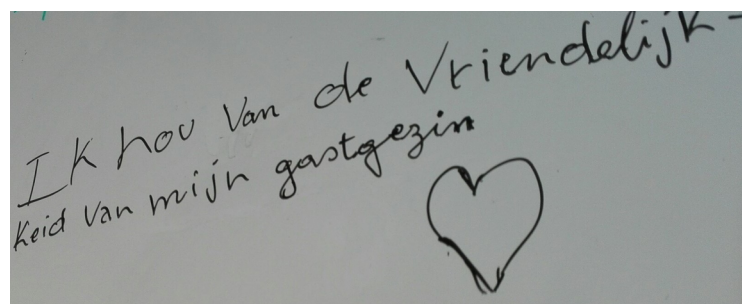 Ik hou van de vriendelijk-
heid van mijn gastgezin